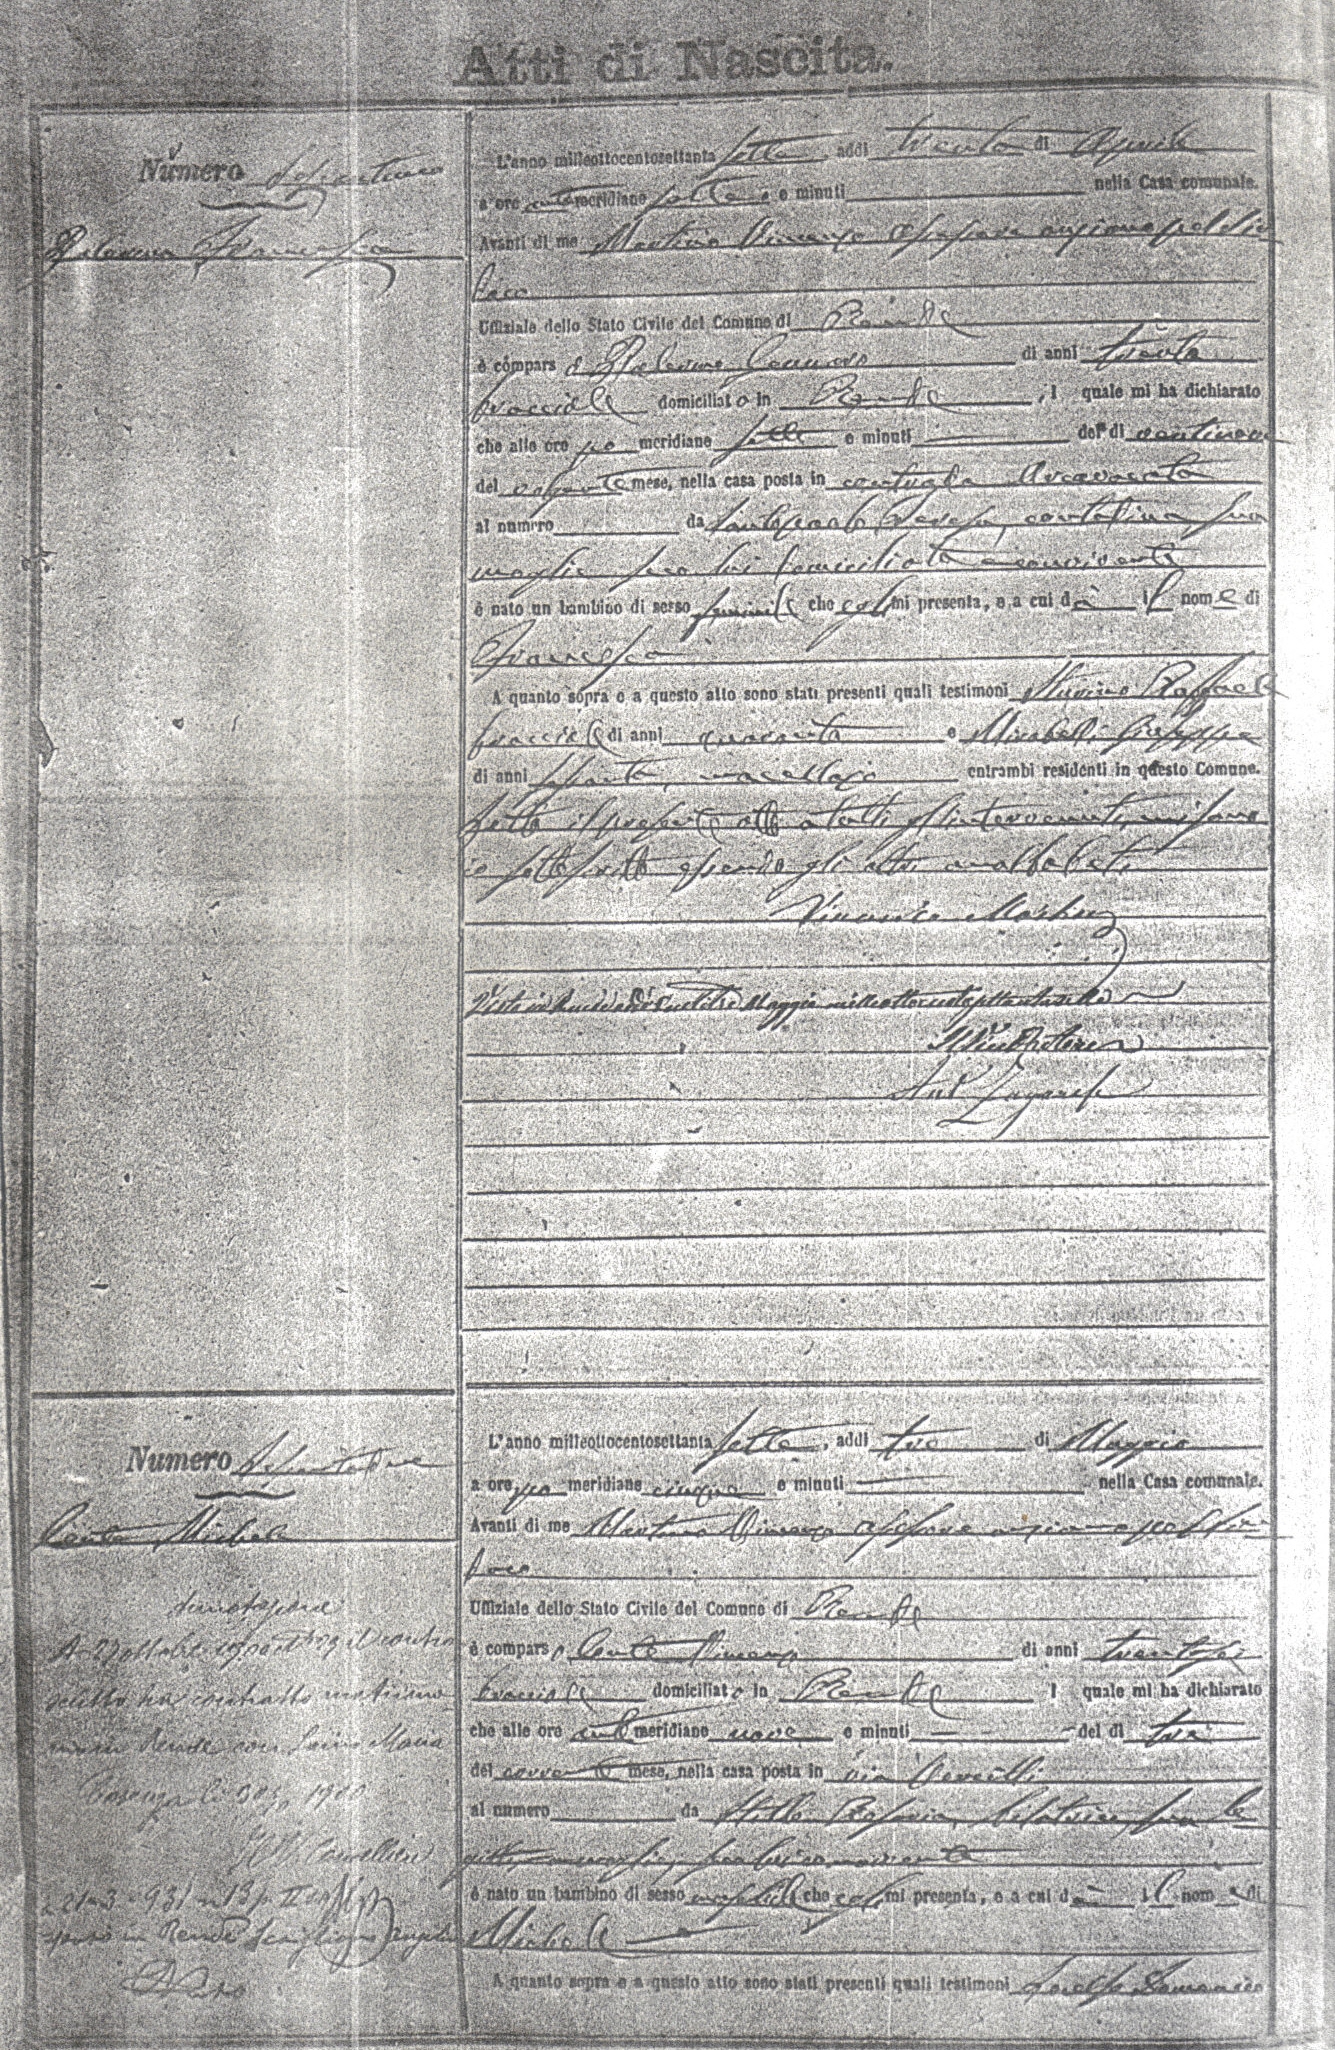 Atti di Nascita.
Numero
Francesca
L'anno milleottocentosettanta sette, addi trenta di Aprile
a ore ante meridiane sette e minuti nella Casa comunale.
Avanti di me Martino Vincenzo Assessore anziano pel Sin
daco
Uffiziale dello Stato Civile del Comune di Rende
è compars o Gennaro di anni trenta
bracciale domiciliato in Rende, l quale mi ha dichiarato
che alle ore po meridiane sette e minuti del dì ventinove
del volgente mese, nella casa posta in Arcavacata
al numero da Santopaolo Teresa, contadina sua
moglie seco lui domiciliata e convivente
è nato un bambino di sesso feminile che egli mi presenta, e a cui dà il nome di
Francesca
A quanto sopra e a questo atto sono stati presenti quali testimoni Raffaele
bracciale di anni quaranta e Mirabelli Giuseppe
di anni macellajo entrambi residenti in questo Comune.
Letto il presente atto a tutti gl'intervenuti, mi sono
io sottoscritto essendo gli altri analfabeti
Vincenzo Martino
Visto in Rende addì ventitre Maggio milleottocentosettantasette
Il Vice Pretore
Ant
Numero settantadue
Conte Michele
L'anno milleottocentosettanta sette, addi tre di Maggio
a ore po meridiane cinque e minuti nella Casa comunale.
Avanti di me Martino Vincenzo Assessore anziano pel Sin
daco
Uffiziale dello Stato Civile del Comune di Rende
è compars o Conte Vincenzo di anni trentasei
bracciale domiciliato in Rende l quale mi ha dichiarato
che alle ore ante meridiane nove e minuti del dì tre
del corrente mese, nella casa posta in via
al numero da Rosaria, filatrice, sua le
gittima moglie, seco lui convivente
è nato un bambino di sesso maschile che egli mi presenta, e a cui dà il nome di
Michele
A quanto sopra e a questo atto sono stati presenti quali testimoni Domenico
Annotazione
A 27 ottobre il contro
scritto ha contratto matrimo
nio in Rende con Maria
Cosenza li 1900
Cavallieri
21-3-931
sposò in Rende